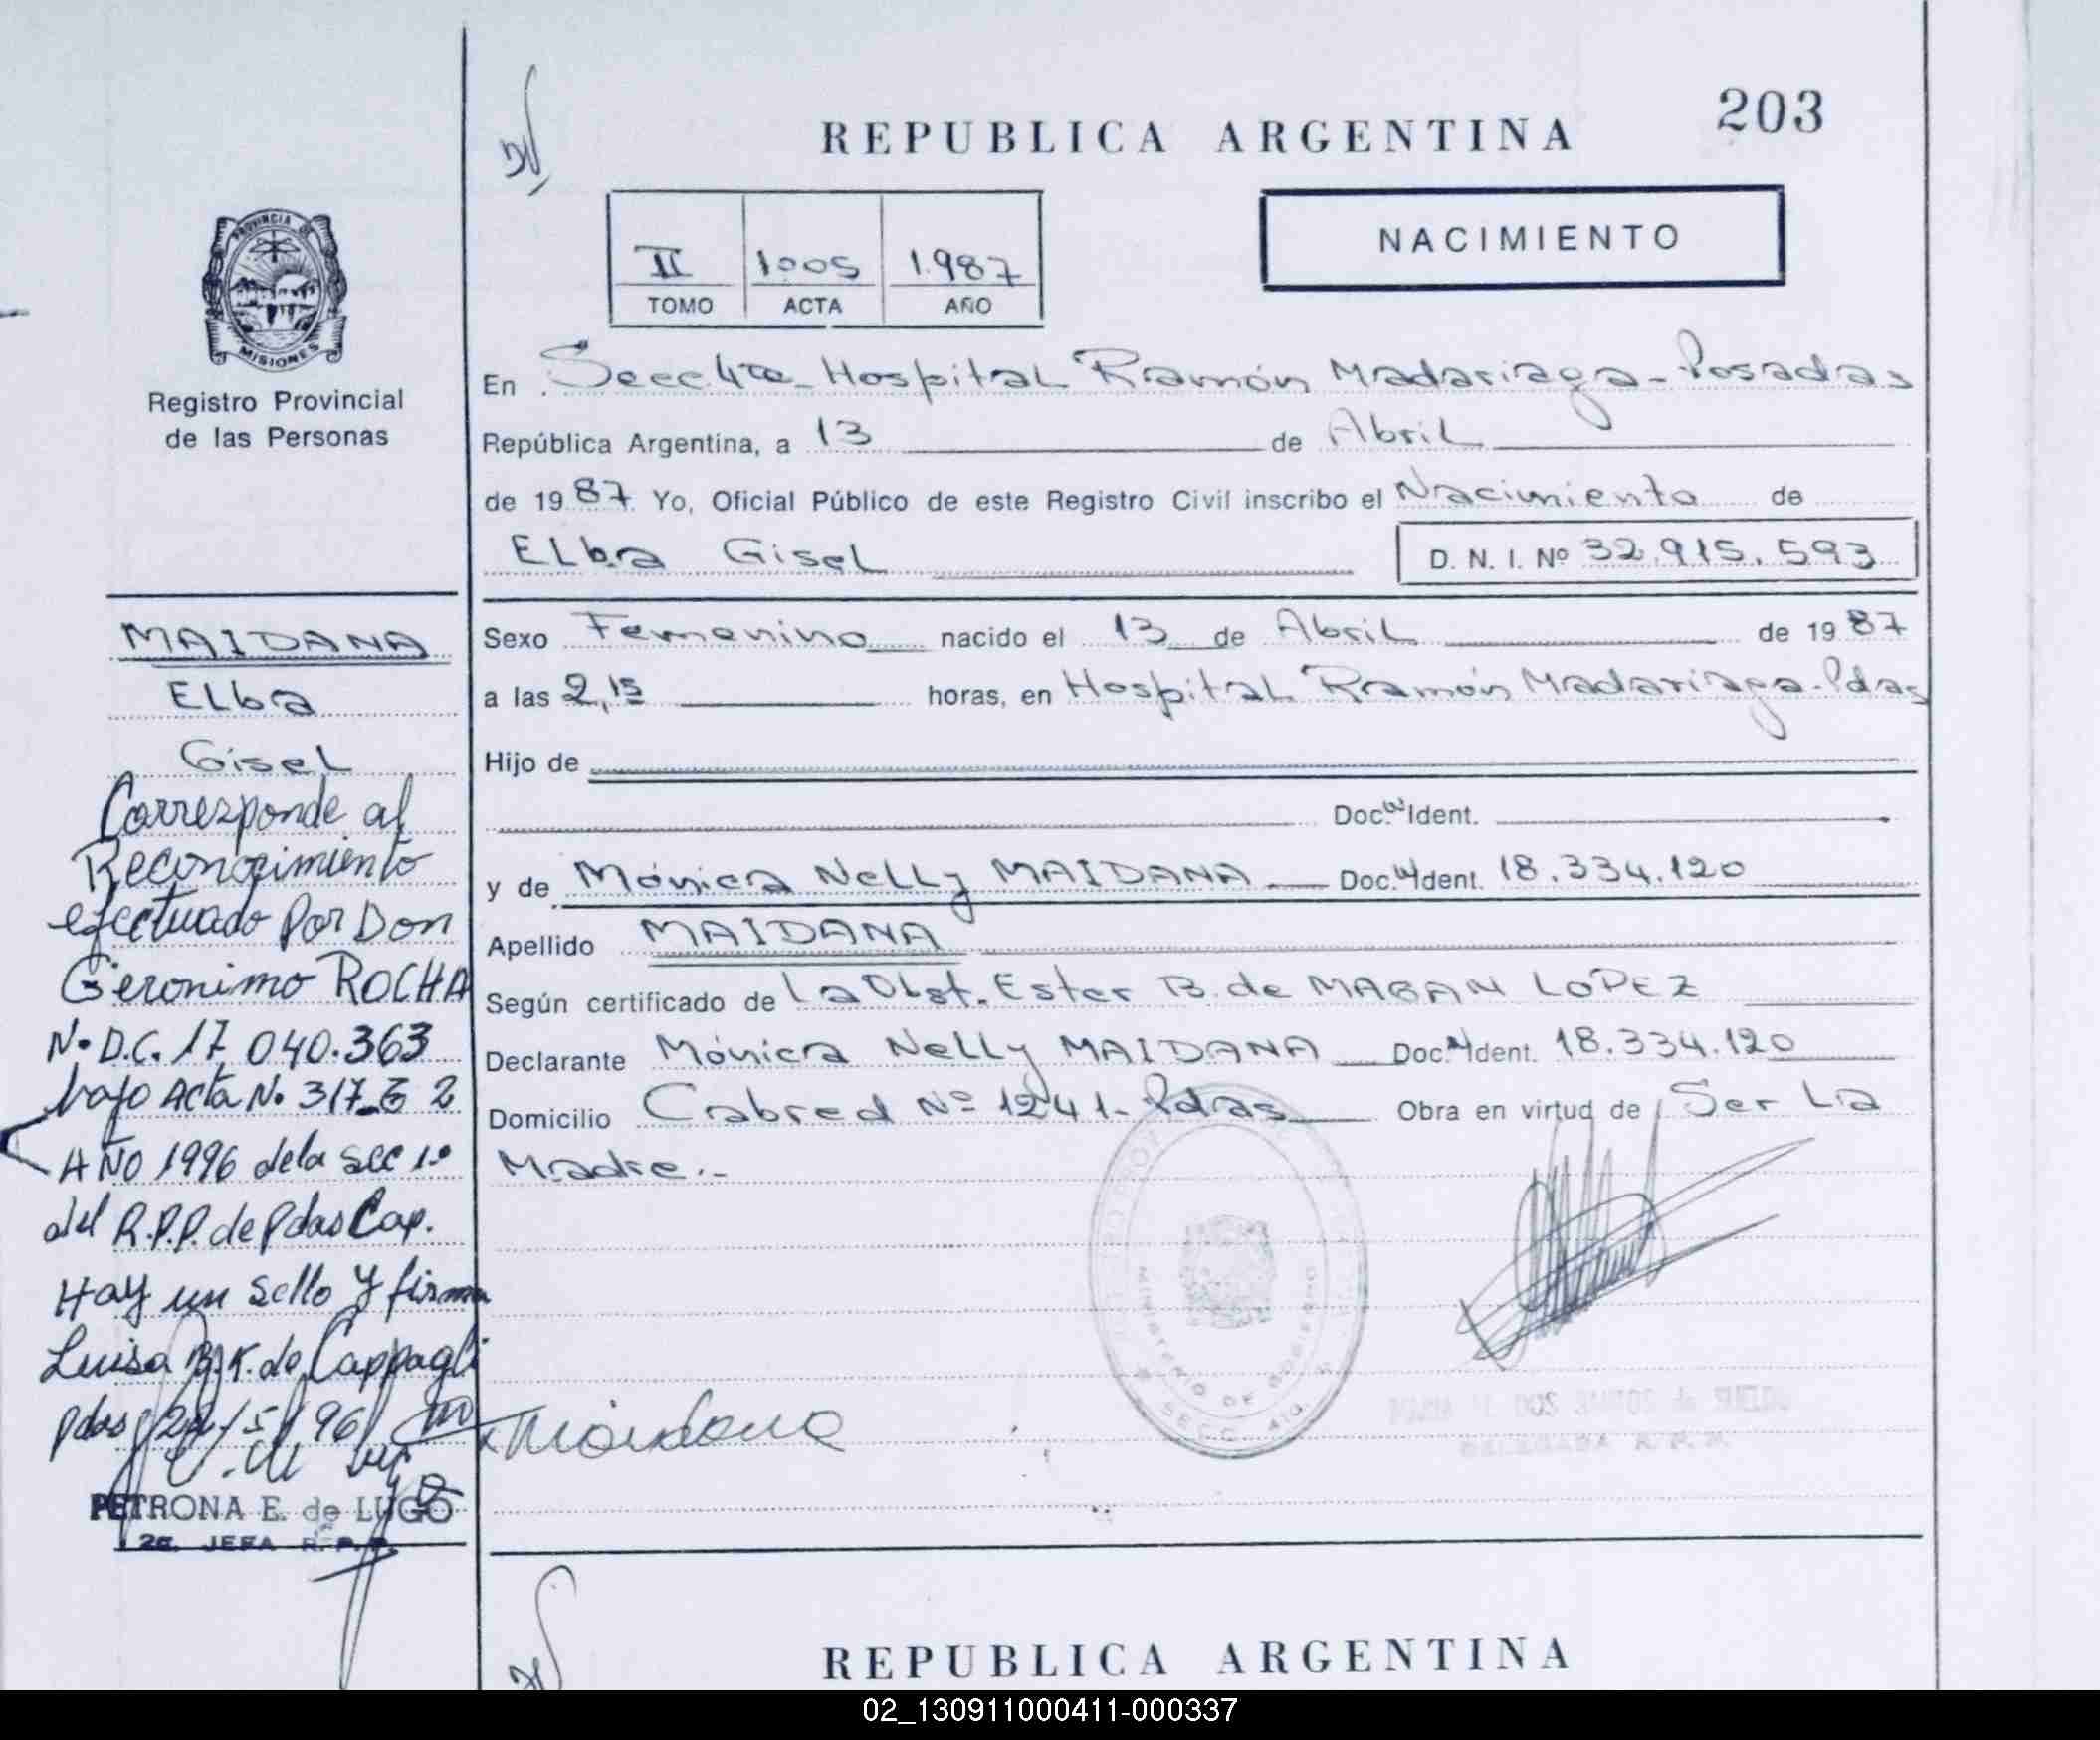 203
REPUBLICA ARGENTINA
NACIMIENTO
II 1005 1.987
TOMO ACTA AÑO
PROVINCIA DE
MISIONES
Registro Provincial
de las Personas
En Secc. 4ta - Hospital Ramón Madariaga - Posadas
República Argentina, a 13 de Abril
de 1987 Yo, Oficial Público de este Registro Civil inscribo el Nacimiento de
Elba Gisel
D. N. I. Nº 32.915.593
Sexo Femenino nacido el 13 de Abril de 1987
a las 2,15 horas, en Hospital Ramón Madariaga - Pdas
Hijo de
Doc. Ident.
y de Mónica Nelly MAIDANA Doc. Ident. 18.334.120
Apellido MAIDANA
Según certificado de La Obst. Ester B. de MABAN LOPEZ
Declarante Mónica Nelly MAIDANA Doc. Ident. 18.334.120
Domicilio Cabred Nº 1241 - Pdas Obra en virtud de Ser La
Madre.-
MAIDANA
Elba
Gisel
Corresponde al
Reconocimiento
efectuado Por Don
Geronimo ROCHA
N. D.C. 17 040.363
bajo Acta N. 317 2
AÑO 1996 de la sec 1º
del R.P.P. de Pdas Cap.
Hay un sello y firma
Luisa B. K. de Cappagli
Pdas 5/96
PETRONA E. de LUGO
2a. JEFA R.P.P.
Maidana
MINISTERIO DE GOBIERNO
REPUBLICA ARGENTINA
02_130911000411-000337